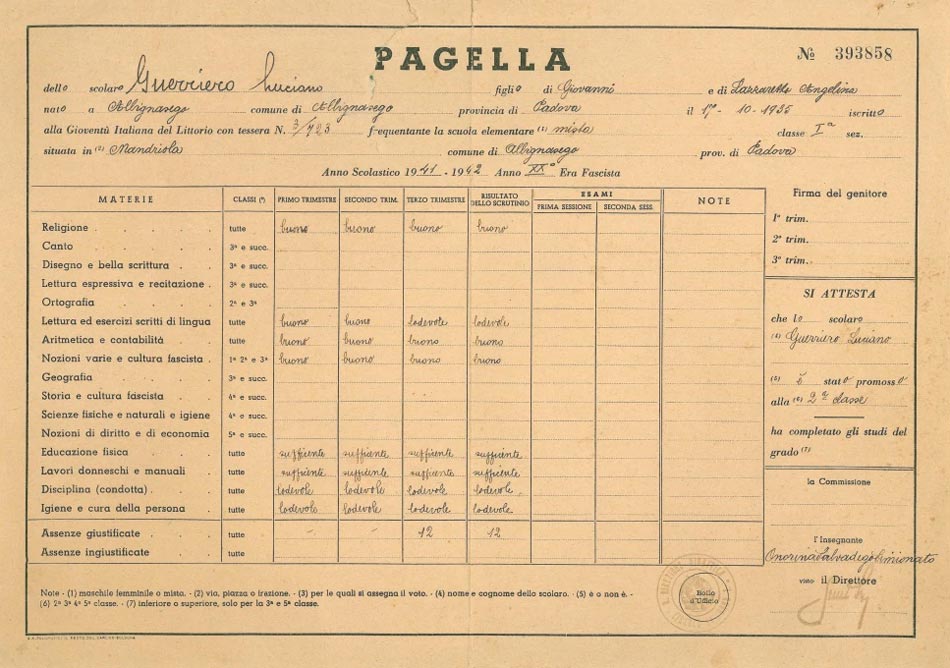 PAGELLA
№ 393858
dello scolaro Guerriero Luciano figlio di Giovanni e di Lazzaretto Angelina
nato a Albignasego comune di Albignasego provincia di Padova il 1º - 10 - 1935 iscritto
alla Gioventù Italiana del Littorio con tessera N. frequentante la scuola elementare (1) mista classe Iª sez.
situata in (2) Mandriola comune di Albignasego prov. di Padova
Anno Scolastico 1941 - 1942 Anno XXº Era Fascista
MATERIE CLASSI (³) PRIMO TRIMESTRE SECONDO TRIM. TERZO TRIMESTRE RISULTATO DELLO SCRUTINIO ESAMI PRIMA SESSIONE SECONDA SESS. NOTE
Religione tutte buono buono buono buono
Canto 3ª e succ.
Disegno e bella scrittura 3ª e succ.
Lettura espressiva e recitazione 3ª e succ.
Ortografia 2ª e 3ª
Lettura ed esercizi scritti di lingua tutte buono buono lodevole lodevole
Aritmetica e contabilità tutte buono buono buono buono
Nozioni varie e cultura fascista 1ª 2ª e 3ª buono buono buono buono
Geografia 3ª e succ.
Storia e cultura fascista 4ª e succ.
Scienze fisiche e naturali e igiene 4ª e succ.
Nozioni di diritto e di economia 5ª e succ.
Educazione fisica tutte sufficiente sufficiente sufficiente sufficiente
Lavori donneschi e manuali tutte sufficiente sufficiente sufficiente sufficiente
Disciplina (condotta) tutte lodevole lodevole lodevole lodevole
Igiene e cura della persona tutte lodevole lodevole lodevole lodevole
Assenze giustificate tutte - - 12 12
Assenze ingiustificate tutte
Firma del genitore
1º trim.
2º trim.
3º trim.
SI ATTESTA
che lo scolaro
(4) Guerriero Luciano
(5) è stato promosso
alla (6) 2ª classe
ha completato gli studi del
grado (7)
la Commissione
l'Insegnante
Onorina Salvadego Simionato
visto il Direttore
Bollo d'Ufficio
Note - (1) maschile femminile o mista. - (2) via, piazza o frazione. - (3) per le quali si assegna il voto. - (4) nome e cognome dello scolaro. - (5) è o non è. -
(6) 2ª 3ª 4ª 5ª classe. - (7) inferiore o superiore, solo per la 3ª e 5ª classe.